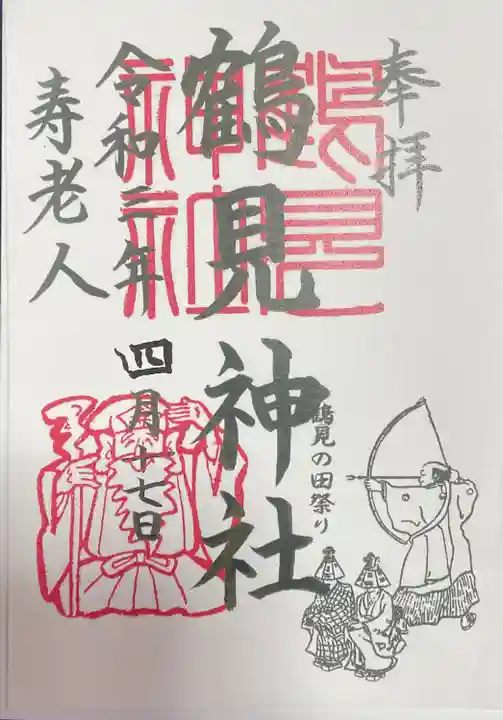 奉拝
鶴見神社
鶴見の田祭り
令和三年四月十七日
寿老人